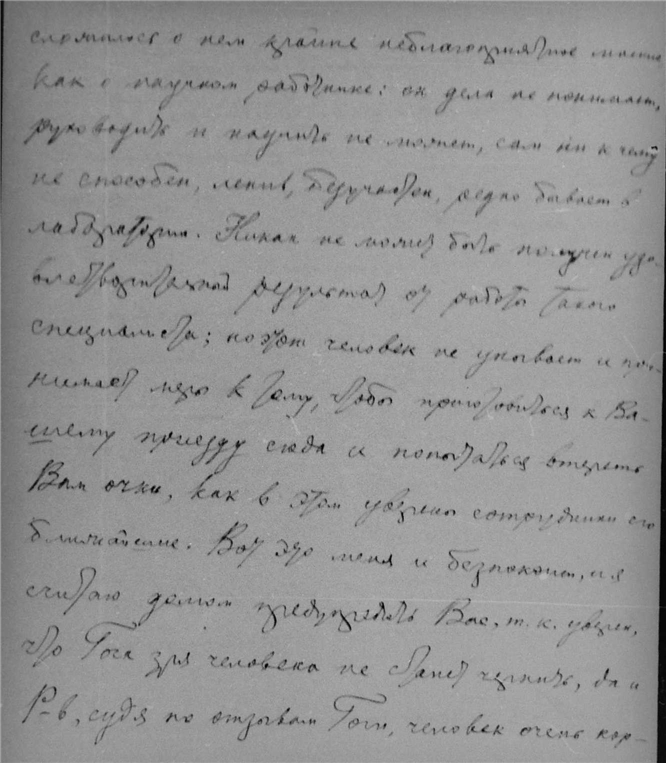 сложилось о нем крайне неблагоприятное мнение
как о научном работнике: он дела не понимает,
руководить и научить не может, сам ни к чему
не способен, ленив, безучастен, редко бывает в
лаборатории. Никак не может быть получен удо-
влетворительный результат от работы такого
специалиста; но этот человек не унывает и при-
нимает меры к тому, чтобы приготовиться к Ва-
шему приезду сюда и попытаться втереть
Вам очки, как в этом уверены сотрудники его
ближайшие. Вот это меня и безпокоит, и я
считаю долгом предупредить Вас, т.к. уверен,
что Гога зря человека не станет чернить, да и
Р-в, судя по отзывам Гоги, человек очень кор-